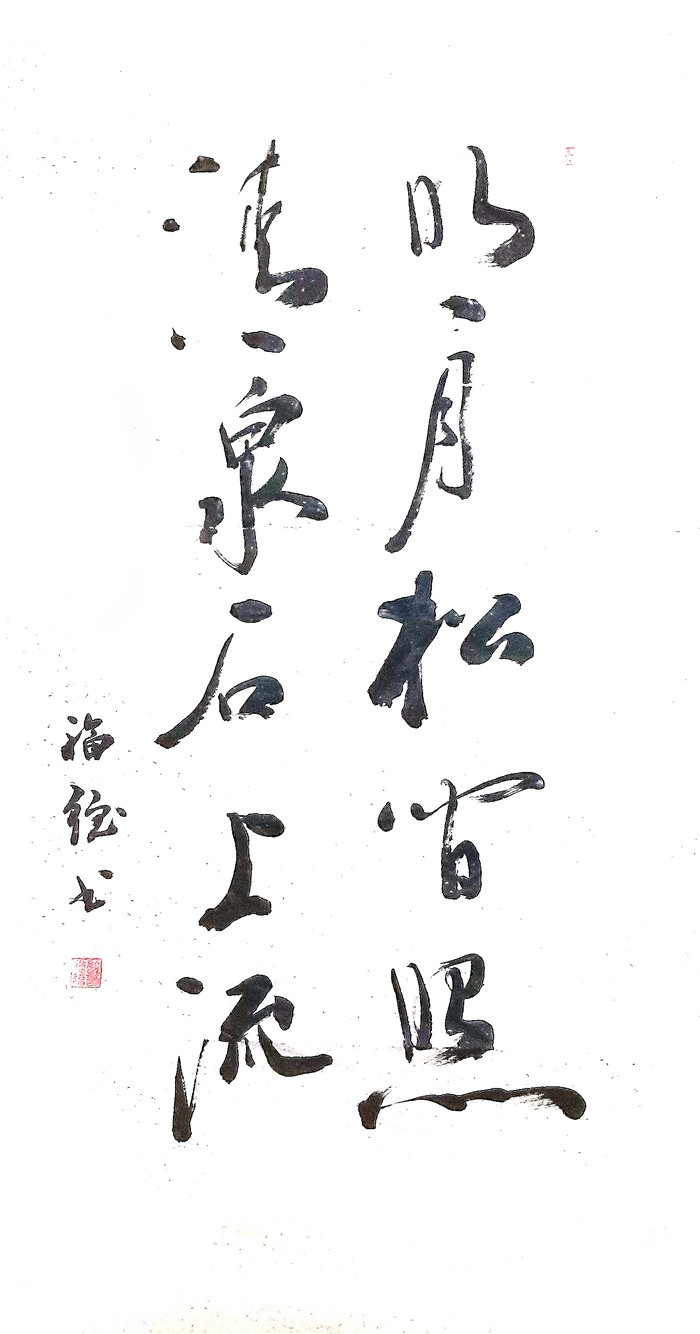 明月松间照
清泉石上流
福德书